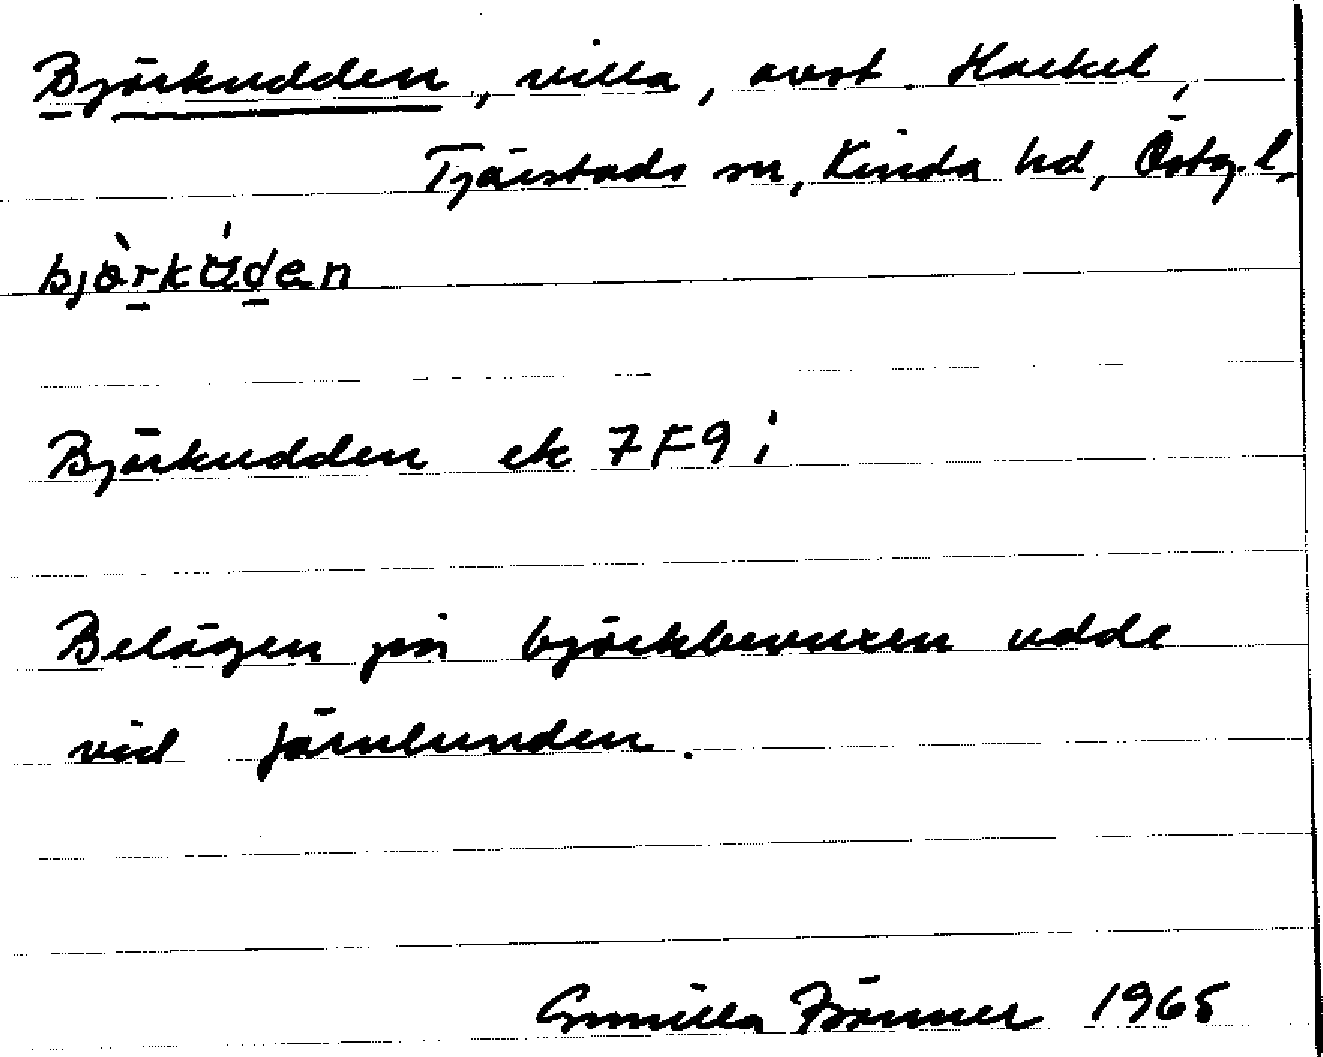 Björkudden, villa, avst. Hackel,
Tjärstads sn, Kinda hd, Östg. l.
bjò̱rkúḏen
Björkudden ek 7F9i
Belägen på björkbevuxen udde
vid Järnlunden.
Gunilla 1965